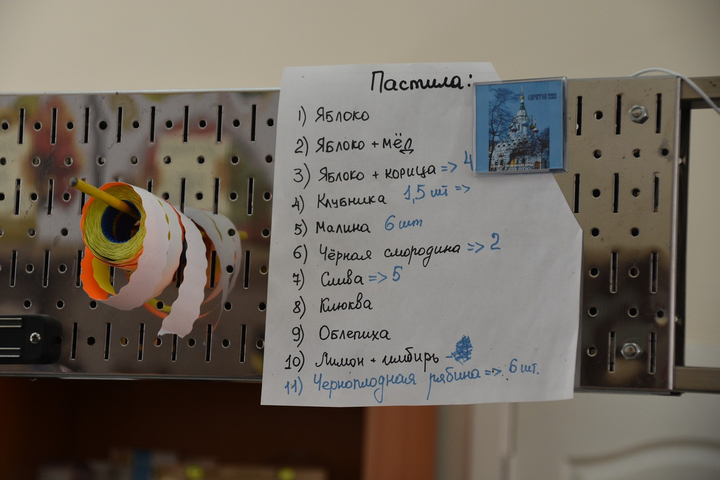 Пастила:
1) Яблоко
2) Яблоко + мёд
3) Яблоко + корица => 4
4) Клубника 1,5 шт =>
5) Малина 6 шт
6) Чёрная смородина => 2
7) Слива => 5
8) Клюква
9) Облепиха
10) Лимон + имбирь
11) Черноплодная рябина => 6 шт.